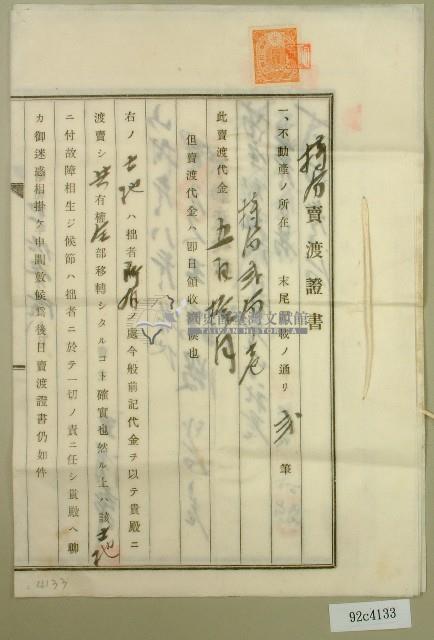 持分賣渡證書
一、不動產ノ所在 末尾記載ノ通リ 貳筆
此賣渡代金 五百拾円
但賣渡代金ハ即日領收候也
右ノ土地ハ拙者所有ノ處今般前記代金ヲ以テ貴殿ニ
渡賣シ共有權全部移轉シタルコト確實也然ル上ハ該土地
ニ付故障相生ジ候節ハ拙者ニ於テ一切ノ責ニ任シ貴殿ヘ聊
カ御迷惑相掛ケ申間敷候爲後日賣渡證書仍如件
國史館臺灣文獻館
TAIWAN HISTORICA
4133
92c4133